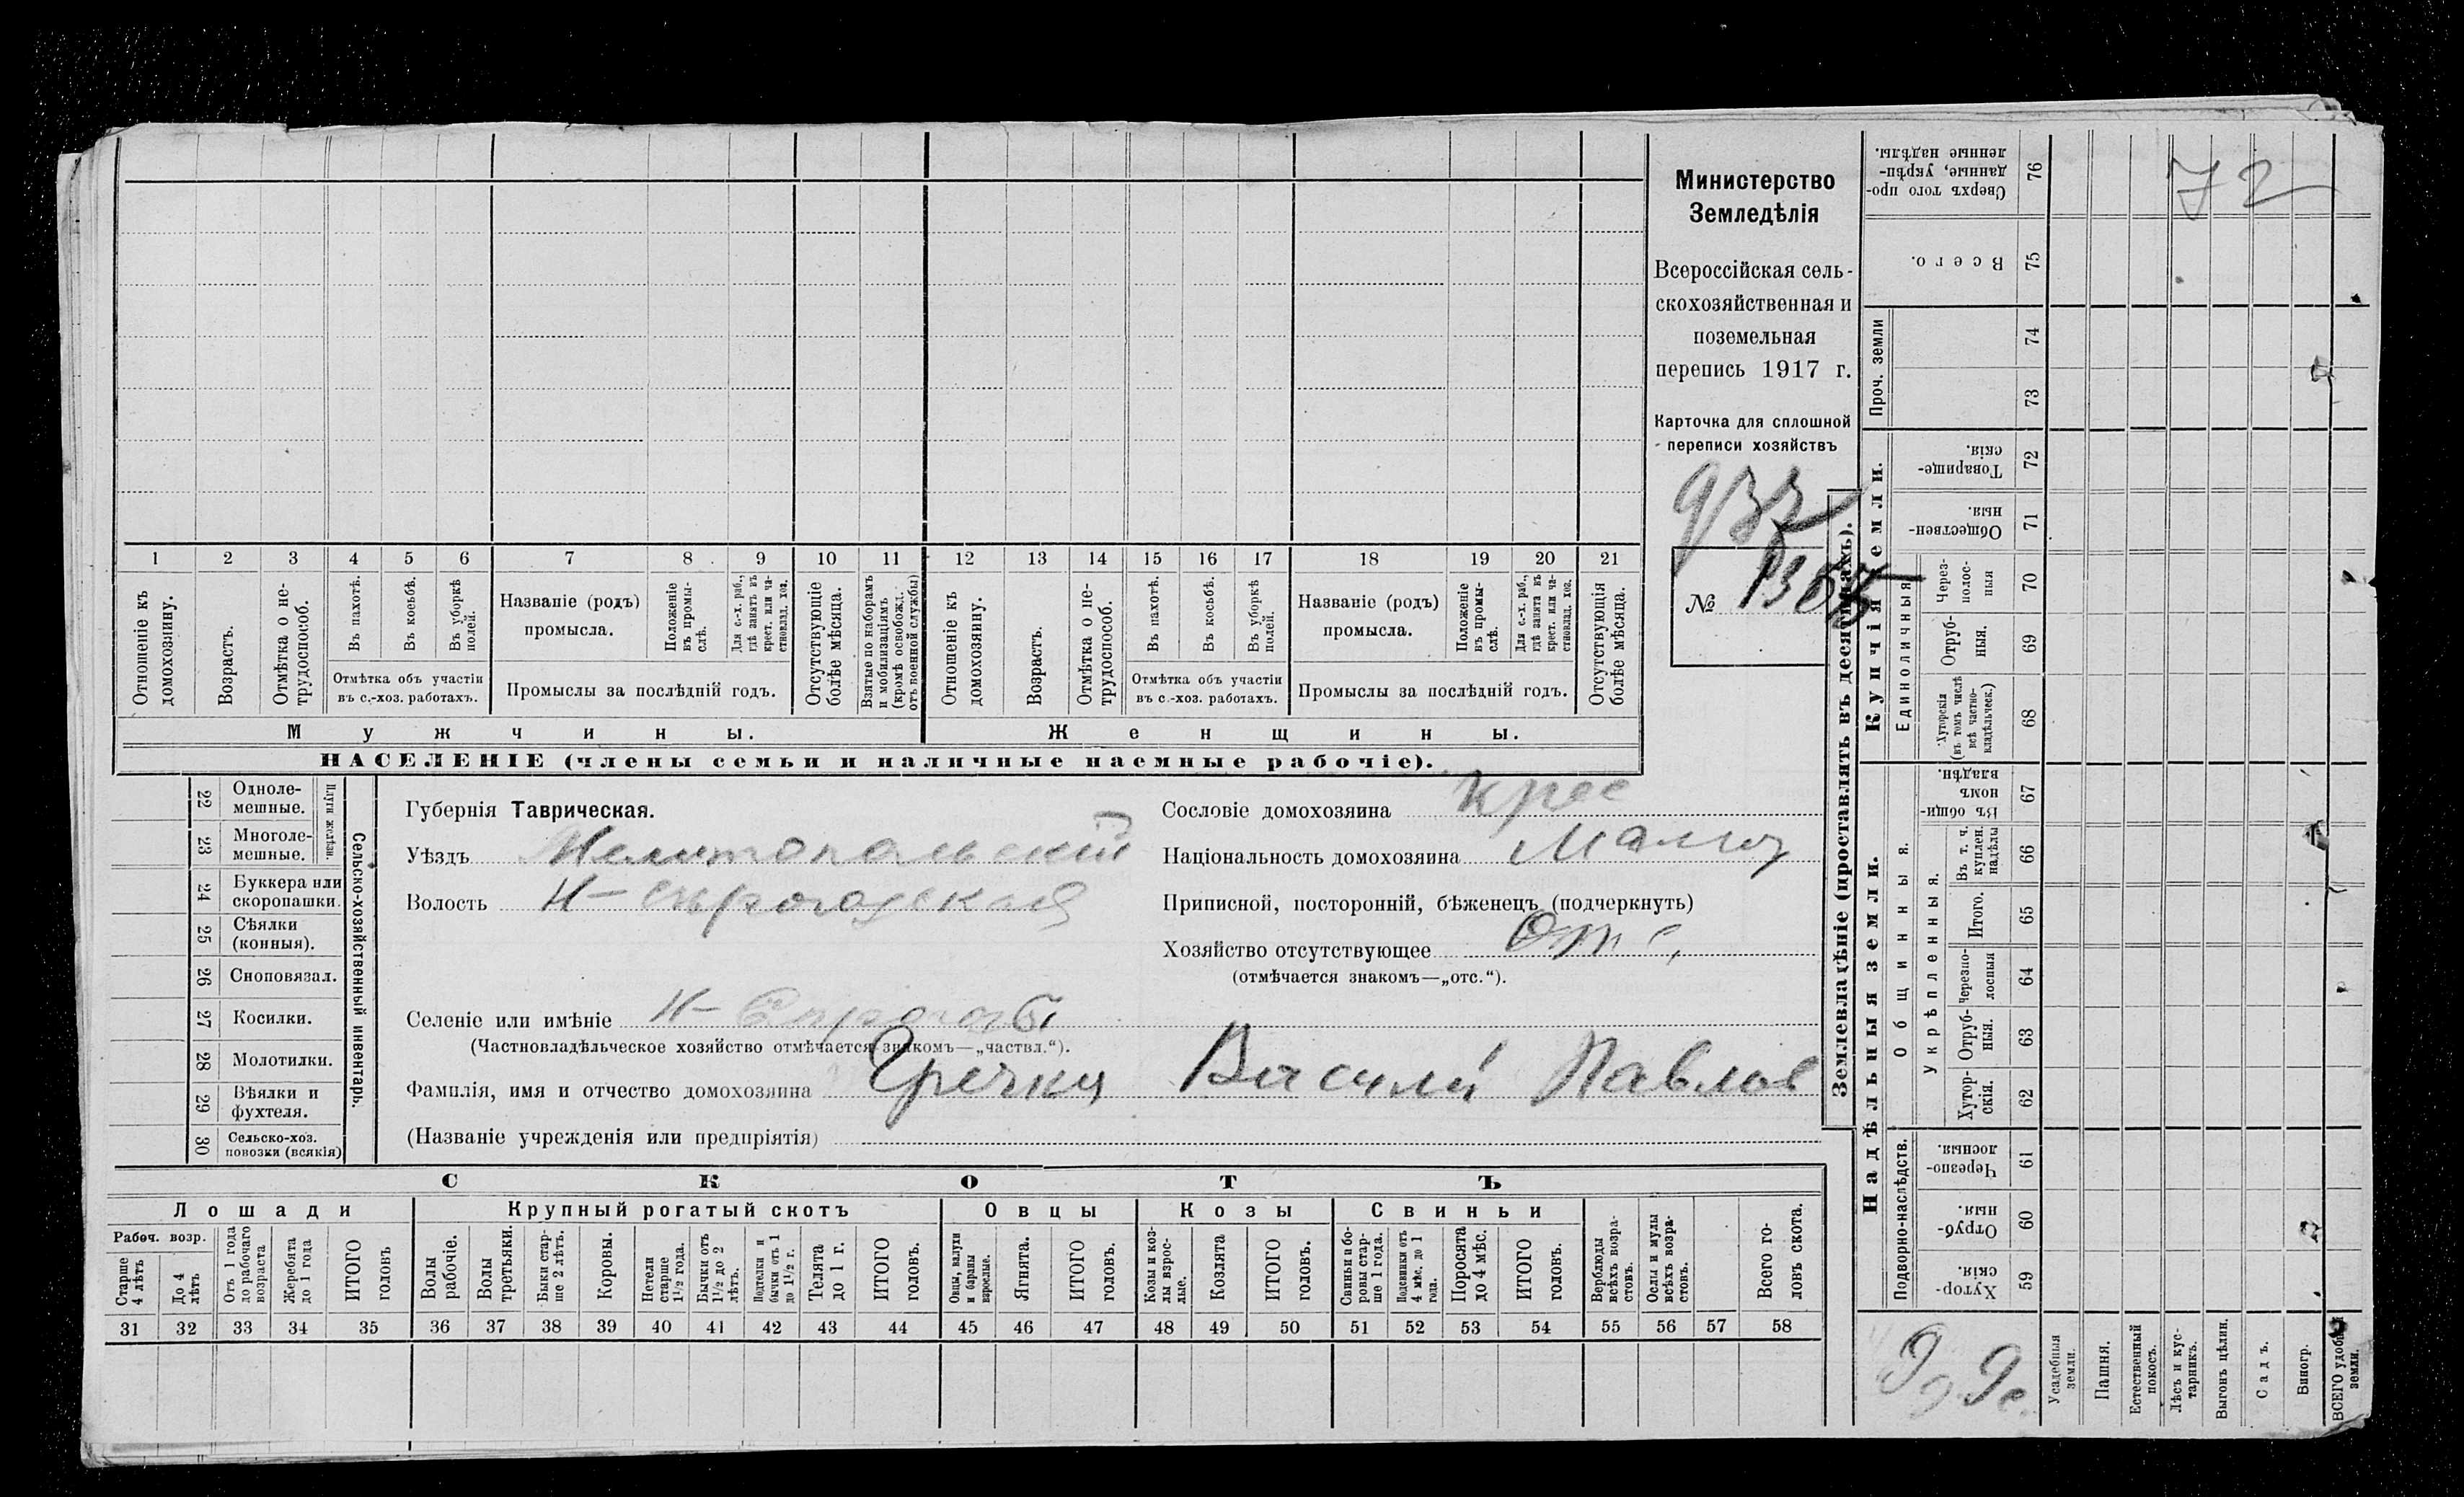 72
Министерство
Земледѣлія
Всероссійская сель-
скохозяйственная и
поземельная
перепись 1917 г.
Карточка для сплошной
переписи хозяйствъ
№
1 2 3 4 5 6 7 8 9 10 11 12 13 14 15 16 17 18 19 20 21
Отношеніе къ домохозяину.
Возрастъ.
Отмѣтка о не-трудоспособ.
Въ пахотѣ.
Въ косьбѣ.
Въ уборкѣ полей.
Отмѣтка объ участіи
въ с.-хоз. работахъ.
Названіе (родъ)
промысла.
Положеніе въ промы-слѣ.
Для с.-х. раб., гдѣ занятъ въ крест. или ча-стновлад. хоз.
Промыслы за послѣдній годъ.
Отсутствующіе болѣе мѣсяца.
Взятые по наборамъ и мобилизаціямъ (кромѣ освобожд. отъ военной службы)
Отношеніе къ домохозяину.
Возрастъ.
Отмѣтка о не-трудоспособ.
Въ пахотѣ.
Въ косьбѣ.
Въ уборкѣ полей.
Отмѣтка объ участіи
въ с.-хоз. работахъ.
Названіе (родъ)
промысла.
Положеніе въ промы-слѣ.
Для с.-х. раб., гдѣ занята въ крест. или ча-стновлад. хоз.
Промыслы за послѣдній годъ.
Отсутствующія болѣе мѣсяца.
Мужчины.
Женщины.
НАСЕЛЕНІЕ (члены семьи и наличные наемные рабочіе).
22 Одноле-мешные.
23 Многоле-мешные.
Плуги желѣзн.
24 Буккера или скоропашки.
25 Сѣялки (конныя).
26 Сноповязал.
27 Косилки.
28 Молотилки.
29 Вѣялки и фухтеля.
30 Сельско-хоз. повозки (всякія)
Сельско-хозяйственный инвентарь.
Губернія Таврическая.
Уѣздъ Мелитопольскій
Волость Н-Сѣрогозская
Селеніе или имѣніе Н-
(Частновладѣльческое хозяйство отмѣчается знакомъ—„частвл.“).
Фамилія, имя и отчество домохозяина Гречка Василій Павлов
(Названіе учрежденія или предпріятія)
Сословіе домохозяина крес
Національность домохозяина
Приписной, посторонній, бѣженецъ (подчеркнуть)
Хозяйство отсутствующее Отс.
(отмѣчается знакомъ—„отс.“).
СКОТЪ
Лошади
Крупный рогатый скотъ
Овцы
Козы
Свиньи
Рабоч. возр.
Старше 4 лѣтъ
До 4 лѣтъ
Отъ 1 года до рабочаго возраста
Жеребята до 1 года
ИТОГО головъ
Волы рабочіе.
Волы третьяки.
Быки стар-ше 2 лѣтъ.
Коровы.
Нетели старше 1½ года.
Бычки отъ 1½ до 2 лѣтъ.
Подтелки и бычки отъ 1 до 1½ г.
Телята до 1 г.
ИТОГО головъ.
Овцы, валухи и бараны взрослые.
Ягнята.
ИТОГО головъ.
Козы и коз-лы взрос-лые.
Козлята
ИТОГО головъ.
Свиньи и бо-ровы стар-ше 1 года.
Подсвинки отъ 4 мѣс. до 1 года.
Поросята до 4 мѣс.
ИТОГО головъ.
Верблюды всѣхъ возра-стовъ.
Ослы и мулы всѣхъ возра-стовъ.
Всего го-ловъ скота.
31 32 33 34 35 36 37 38 39 40 41 42 43 44 45 46 47 48 49 50 51 52 53 54 55 56 57 58
Землевладѣніе (проставлять въ десятинахъ).
Купчія земли.
Надѣльныя земли.
Сверхъ того про-данные, укрѣп-ленные надѣлы. 76
Всего. 75
Проч. земли
74
73
Товарище-скія. 72
Обществен-ныя. 71
Единоличныя
Через-полос-ныя 70
Отруб-ныя. 69
Хуторскія (въ томъ числѣ всѣ частно-владѣльческ.) 68
Общинныя.
Въ общи-номъ владѣн. 67
Укрѣпленныя.
Въ т. ч. куплен. надѣлы 66
Итого. 65
Черезпо-лосныя 64
Отруб-ныя. 63
Хутор-скія. 62
Подворно-наслѣдств.
Черезпо-лосныя. 61
Отруб-ныя. 60
Хутор-скія. 59
Усадебныя земли.
Пашня.
Естественный покосъ.
Лѣсъ и кус-тарникъ.
Выгонъ цѣлин.
Садъ.
Виногр.
ВСЕГО удобной земли.